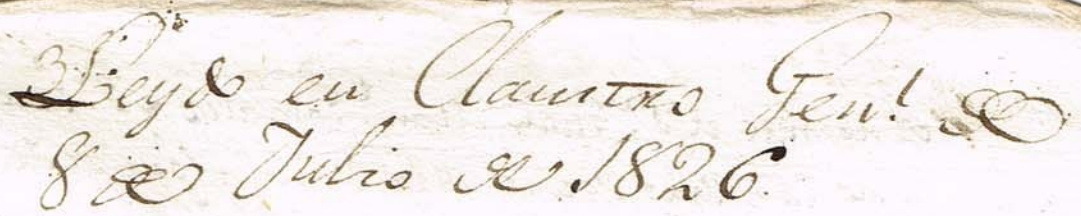 Leydo en Claustro Gen.l de
8 de Julio de 1826.